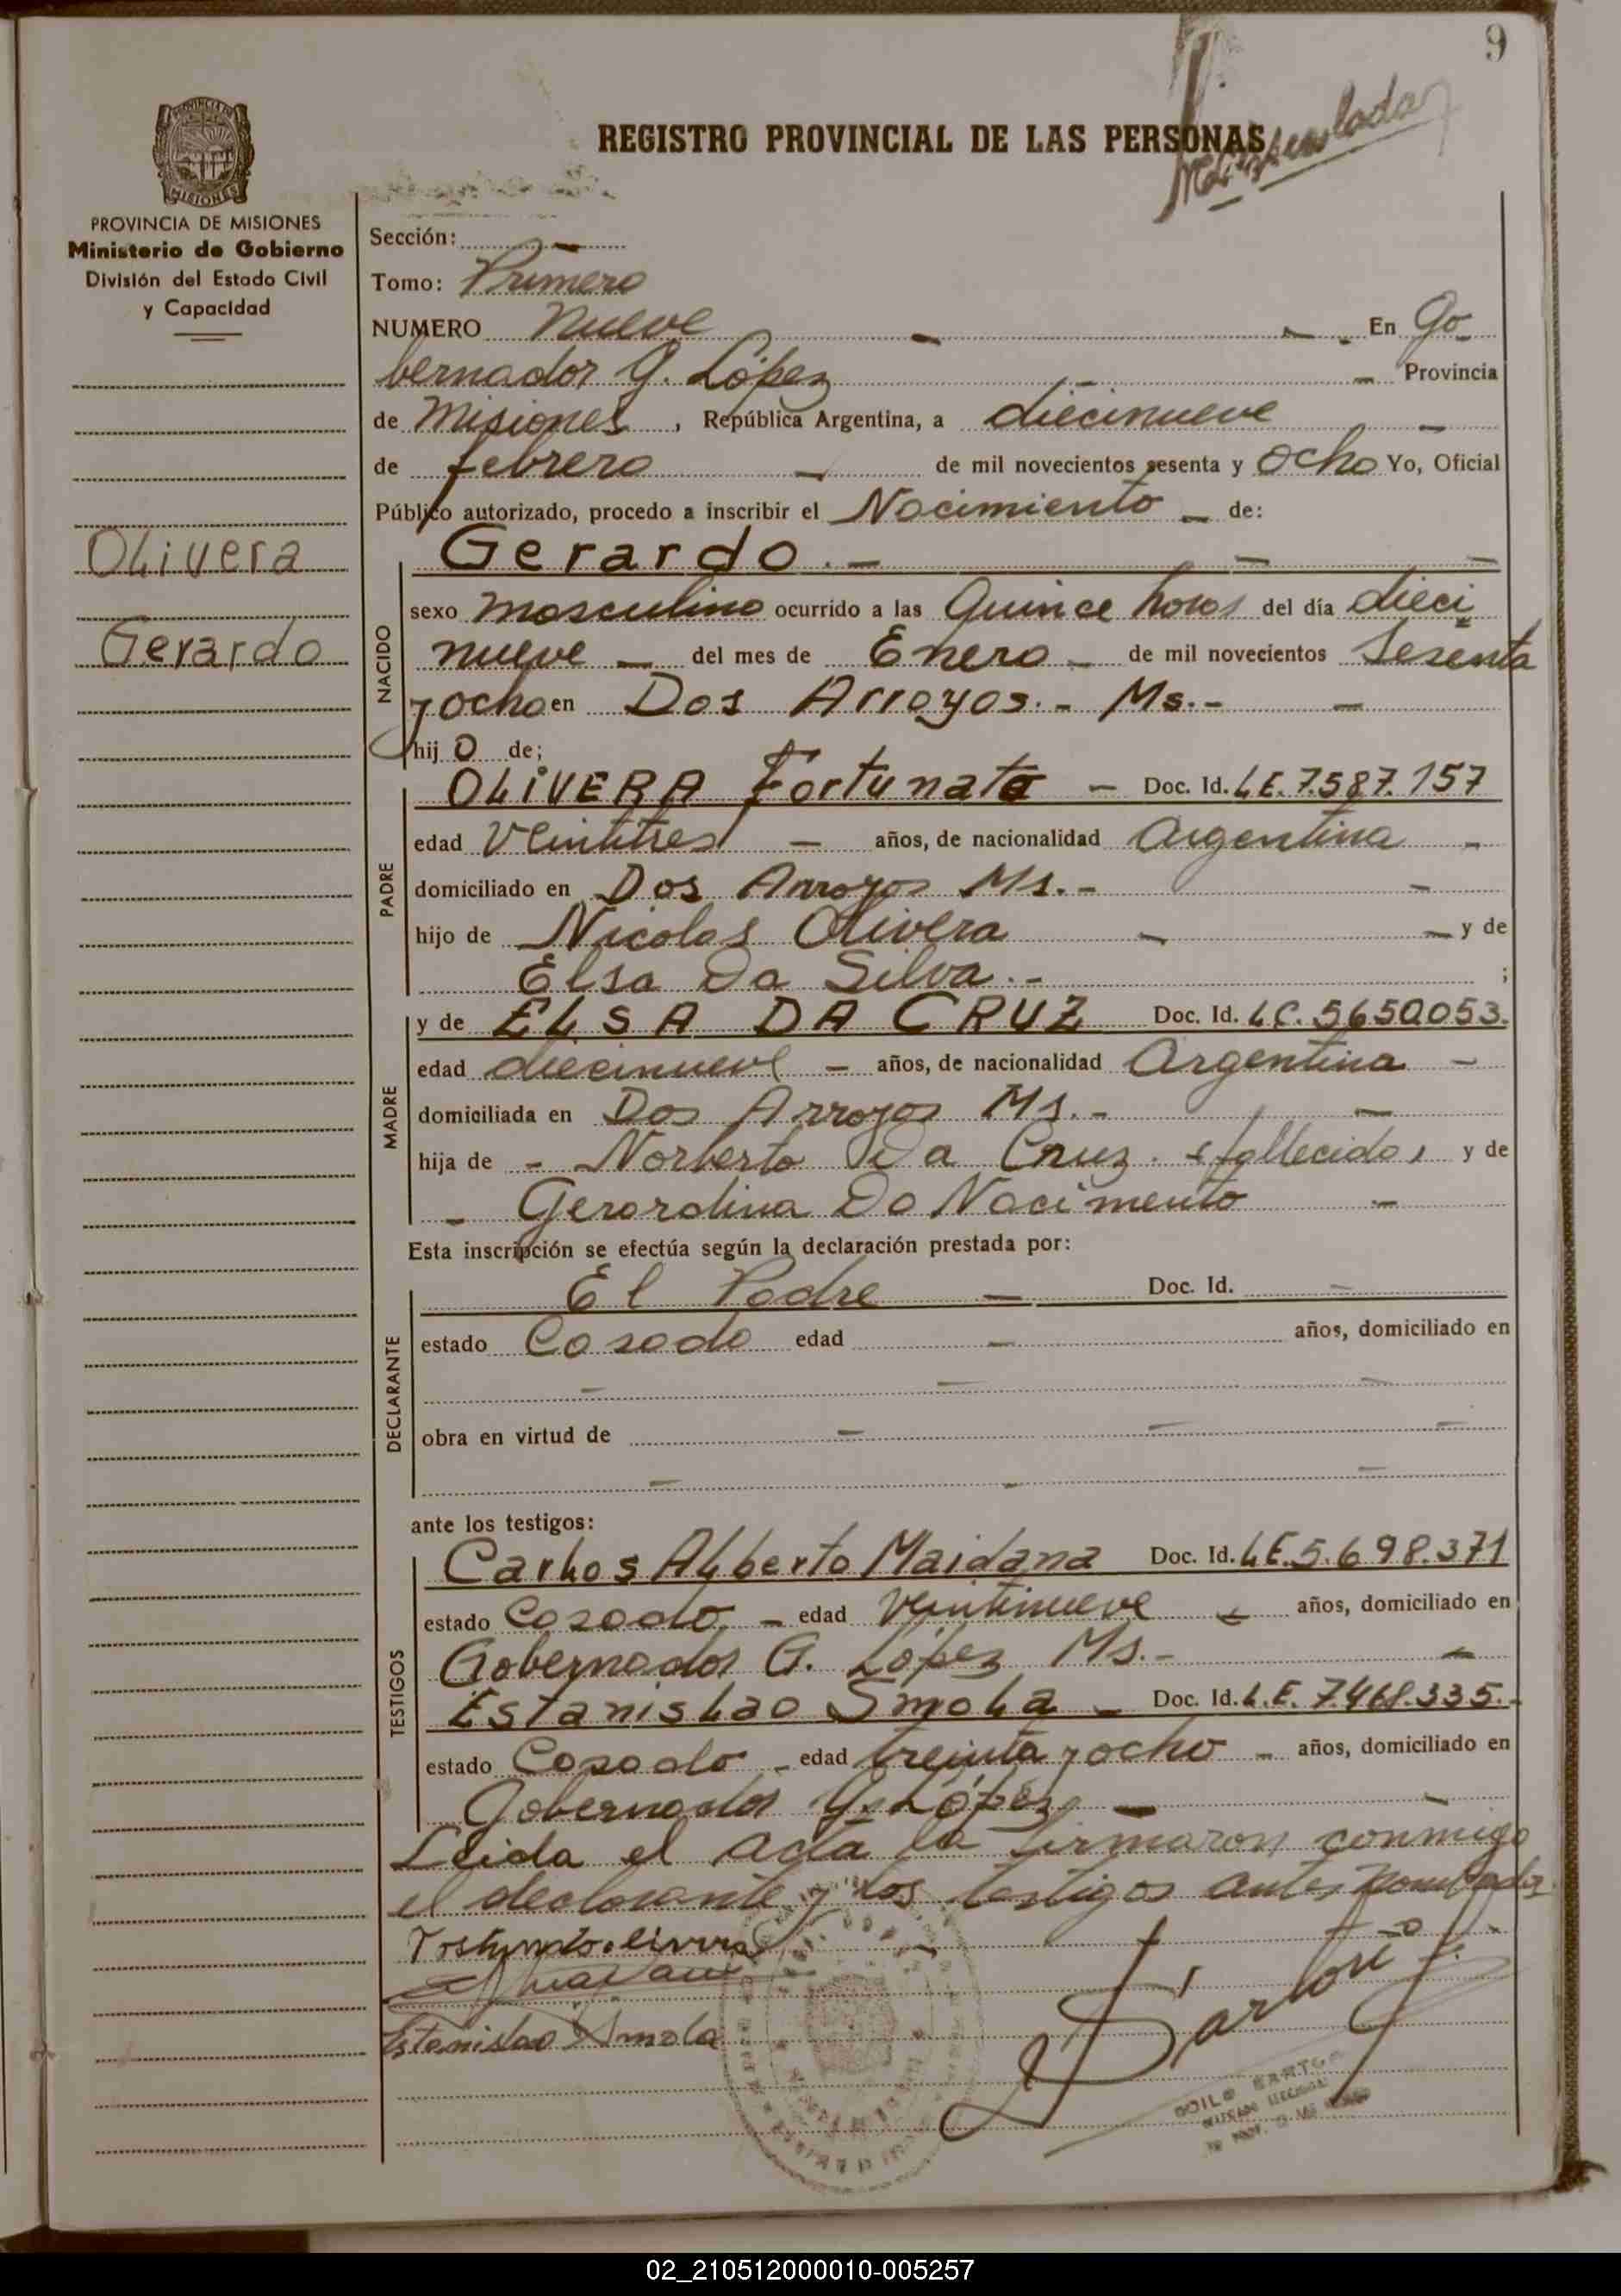 9
REGISTRO PROVINCIAL DE LAS PERSONAS
PROVINCIA DE
MISIONES
PROVINCIA DE MISIONES
Ministerio de Gobierno
División del Estado Civil
y Capacidad
Olivera
Gerardo
Sección: –
Tomo: Primero
NUMERO Nueve – – - En Go
bernador G. López – – Provincia
de Misiones , República Argentina, a diecinueve –
de febrero – de mil novecientos sesenta y ocho Yo, Oficial
Público autorizado, procedo a inscribir el Nacimiento – de:
NACIDO
Gerardo.– – –
sexo masculino ocurrido a las Quince horas del día dieci
nueve – del mes de Enero – de mil novecientos Sesenta
y ocho en Dos Arroyos.- Ms.- –
hij o de;
PADRE
OLIVERA Fortunato – Doc. Id. LE. 7.587.157
edad Veintitres – años, de nacionalidad Argentina -
domiciliado en Dos Arroyos Ms.- –
hijo de Nicolas Olivera – – y de
Elsa Da Silva.- ;
MADRE
y de ELSA DA CRUZ Doc. Id. LC. 5650053.
edad diecinueve – años, de nacionalidad Argentina –
domiciliada en Dos Arroyos Ms.- –
hija de - Norberto Da Cruz. (fallecido) y de
- Gerardina Do Nacimento –
Esta inscripción se efectúa según la declaración prestada por:
DECLARANTE
El Padre – Doc. Id. –
estado Casado edad – años, domiciliado en
– – –
obra en virtud de – – –
– – –
ante los testigos:
TESTIGOS
Carlos Alberto Maidana Doc. Id. LE. 5.698.371
estado Casado – edad Veintinueve – años, domiciliado en
Gobernador G. López Ms.- –
Estanislao Smola – Doc. Id. L.E. 7.468.335.-
estado Casado - edad treinta y ocho – años, domiciliado en
Gobernador G. López – –
Leida el acta la firmaron conmigo
el declarante y los testigos antes nombrados
Estanislao Smola
02_210512000010-005257